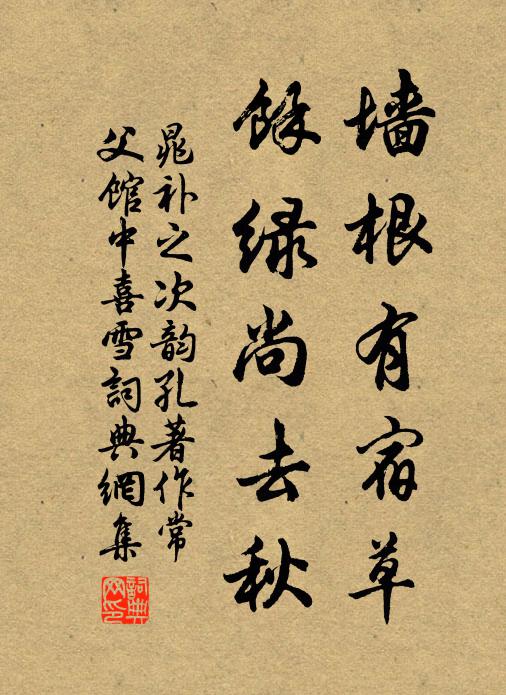 墙根有宿草
餘绿尚去秋
晁补之次韵孔著作常
父馆中喜雪詞典網集
詞典网印